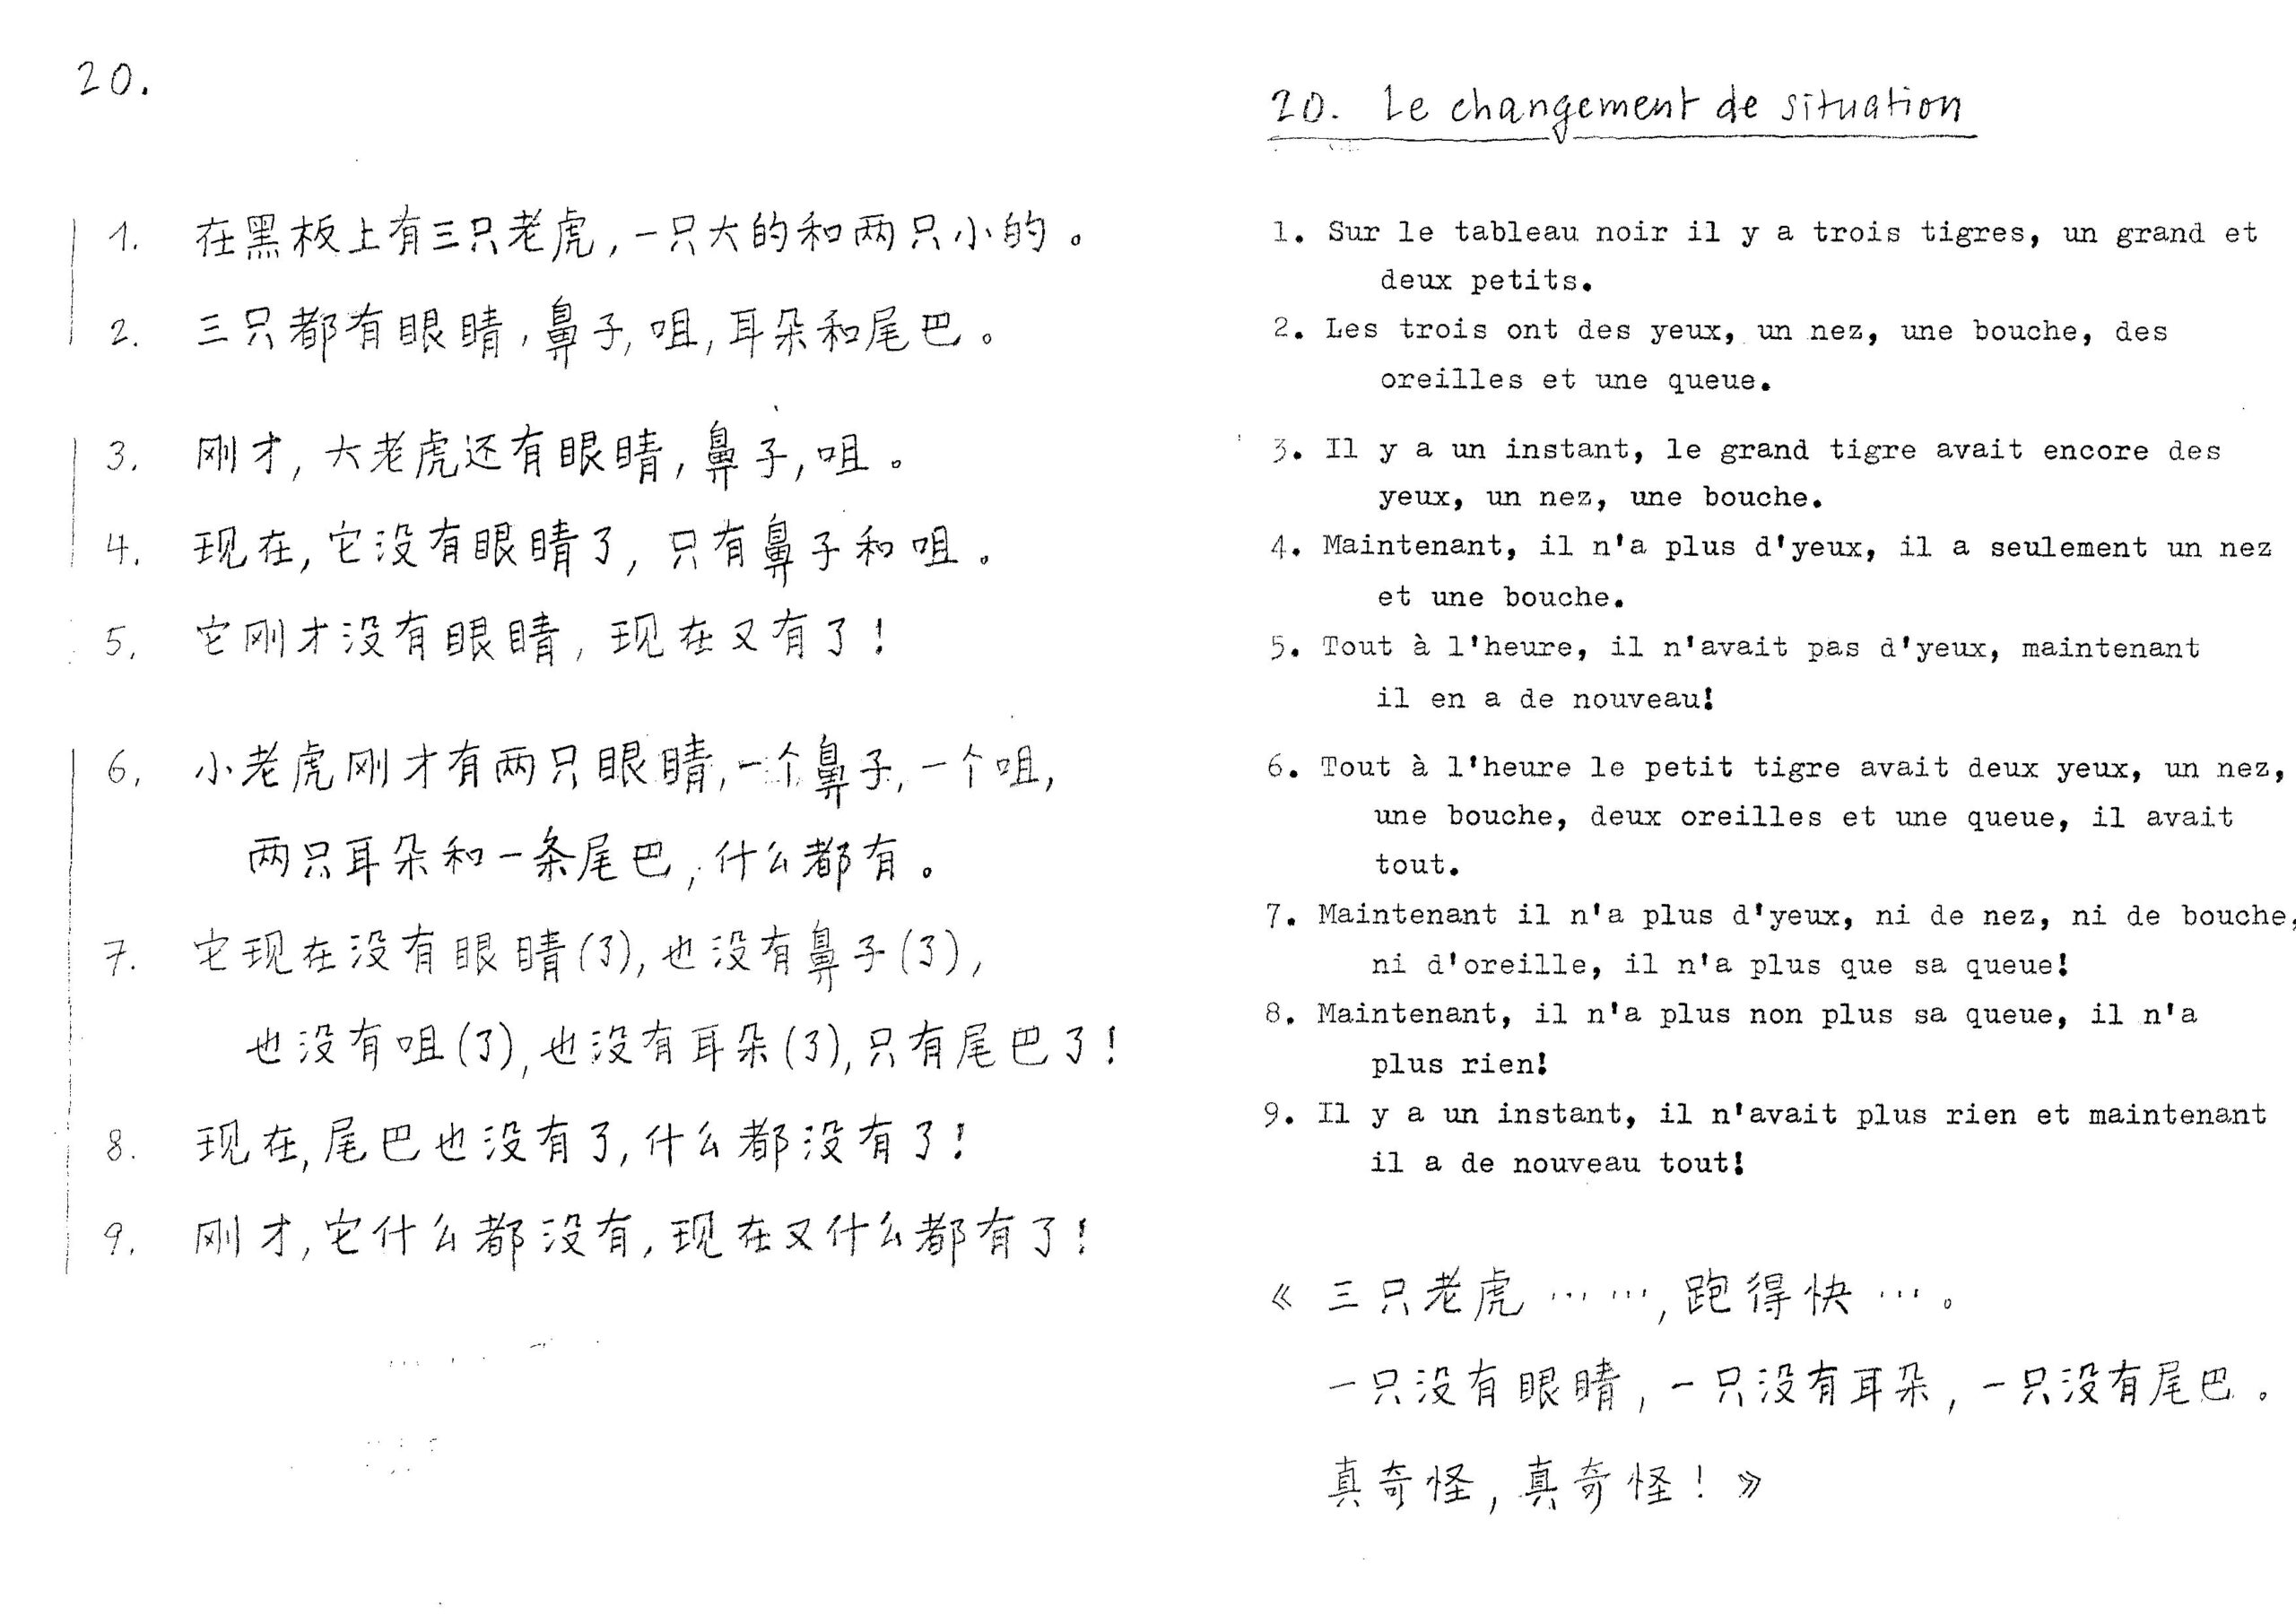 20.
1. 在黑板上有三只老虎,一只大的和两只小的。
2. 三只都有眼睛,鼻子,咀,耳朵和尾巴。
3. 刚才,大老虎还有眼睛,鼻子,咀。
4. 现在,它没有眼睛了,只有鼻子和咀。
5. 它刚才没有眼睛,现在又有了!
6. 小老虎刚才有两只眼睛,一个鼻子,一个咀,
两只耳朵和一条尾巴,什么都有。
7. 它现在没有眼睛(了),也没有鼻子(了),
也没有咀(了),也没有耳朵(了),只有尾巴了!
8. 现在,尾巴也没有了,什么都没有了!
9. 刚才,它什么都没有,现在又什么都有了!
20. Le changement de situation
1. Sur le tableau noir il y a trois tigres, un grand et
deux petits.
2. Les trois ont des yeux, un nez, une bouche, des
oreilles et une queue.
3. Il y a un instant, le grand tigre avait encore des
yeux, un nez, une bouche.
4. Maintenant, il n'a plus d'yeux, il a seulement un nez
et une bouche.
5. Tout à l'heure, il n'avait pas d'yeux, maintenant
il en a de nouveau!
6. Tout à l'heure le petit tigre avait deux yeux, un nez,
une bouche, deux oreilles et une queue, il avait
tout.
7. Maintenant il n'a plus d'yeux, ni de nez, ni de bouche,
ni d'oreille, il n'a plus que sa queue!
8. Maintenant, il n'a plus non plus sa queue, il n'a
plus rien!
9. Il y a un instant, il n'avait plus rien et maintenant
il a de nouveau tout!
《 三只老虎……,跑得快…。
一只没有眼睛,一只没有耳朵,一只没有尾巴。
真奇怪,真奇怪!》